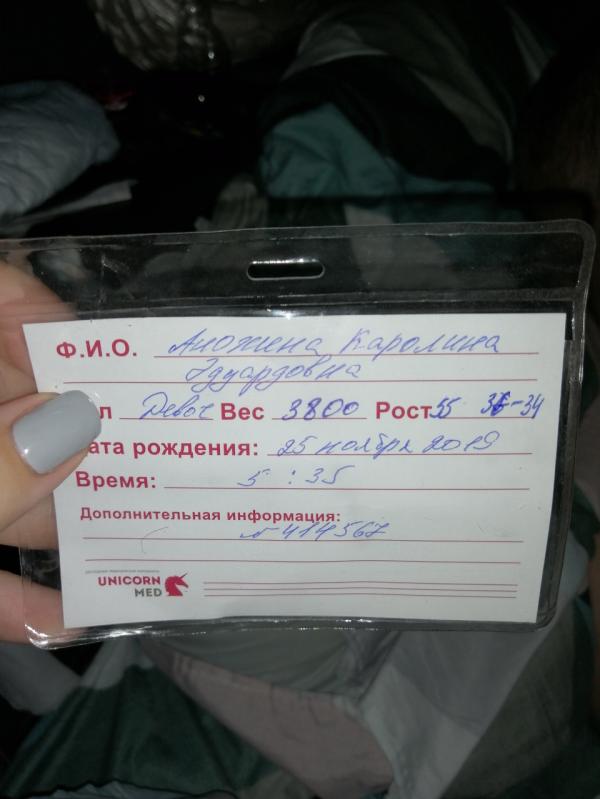 Ф.И.О. Аножена Каролина
Эдуардовна
л Девоч Вес 3800 Рост 55 36-34
ата рождения: 25 ноября 2019
Время: 5:35
Дополнительная информация:
№ 414567
UNICORN
MED